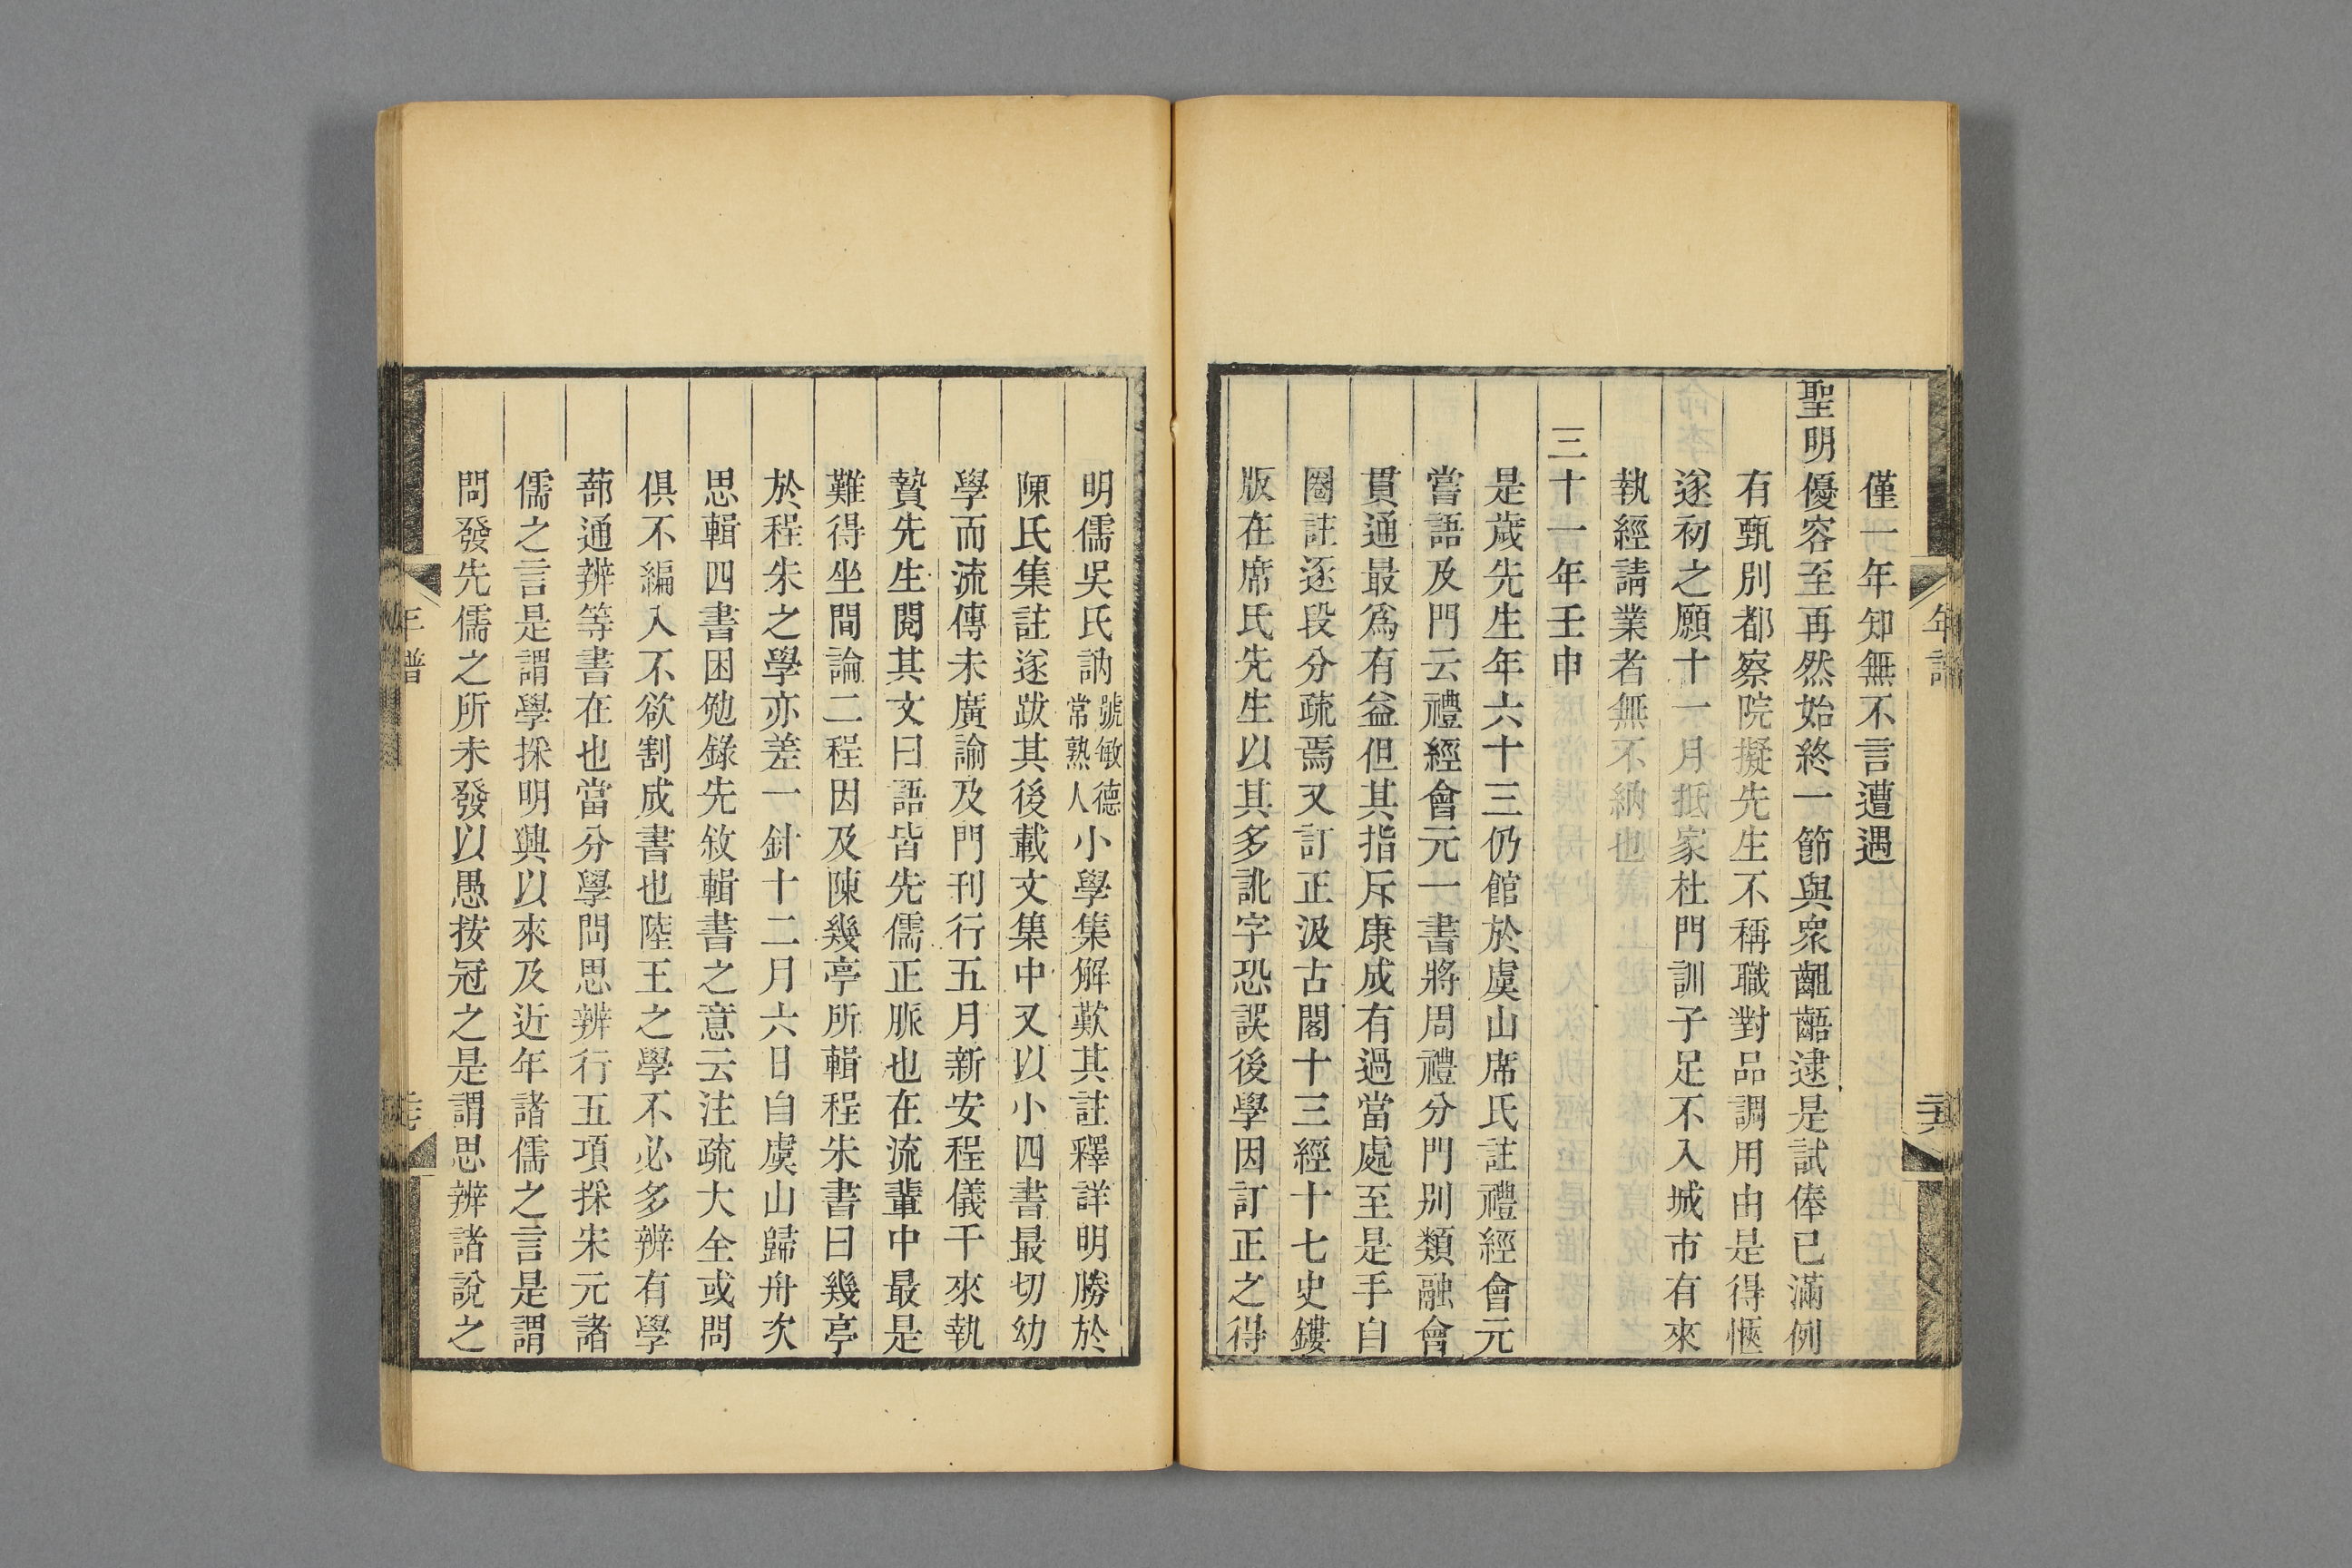 年譜
僅一年知無不言遭遇
聖明優容至再然始終一節與衆齟齬逮是試俸已滿例
有甄別都察院擬先生不稱職對品調用由是得愜
遂初之願十一月抵家杜門訓子足不入城市有來
執經請業者無不納也
三十一年壬申
是歲先生年六十三仍館於虞山席氏註禮經會元
嘗語及門云禮經會元一書將周禮分門別類融會
貫通最爲有益但其指斥康成有過當處至是手自
圈註逐段分疏焉又訂正汲古閣十三經十七史鏤
版在席氏先生以其多訛字恐誤後學因訂正之得
明儒吳氏訥號敏德常熟人小學集解歎其註釋詳明勝於
陳氏集註遂跋其後載文集中又以小四書最切幼
學而流傳未廣諭及門刊行五月新安程儀千來執
贄先生閱其文曰語皆先儒正脈也在流輩中最是
難得坐間論二程因及陳幾亭所輯程朱書曰幾亭
於程朱之學亦差一針十二月六日自虞山歸舟次
思輯四書困勉錄先敘輯書之意云注疏大全或問
俱不編入不欲割成書也陸王之學不必多辨有學
蔀通辨等書在也當分學問思辨行五項採宋元諸
儒之言是謂學採明興以來及近年諸儒之言是謂
問發先儒之所未發以愚按冠之是謂思辨諸說之
年譜